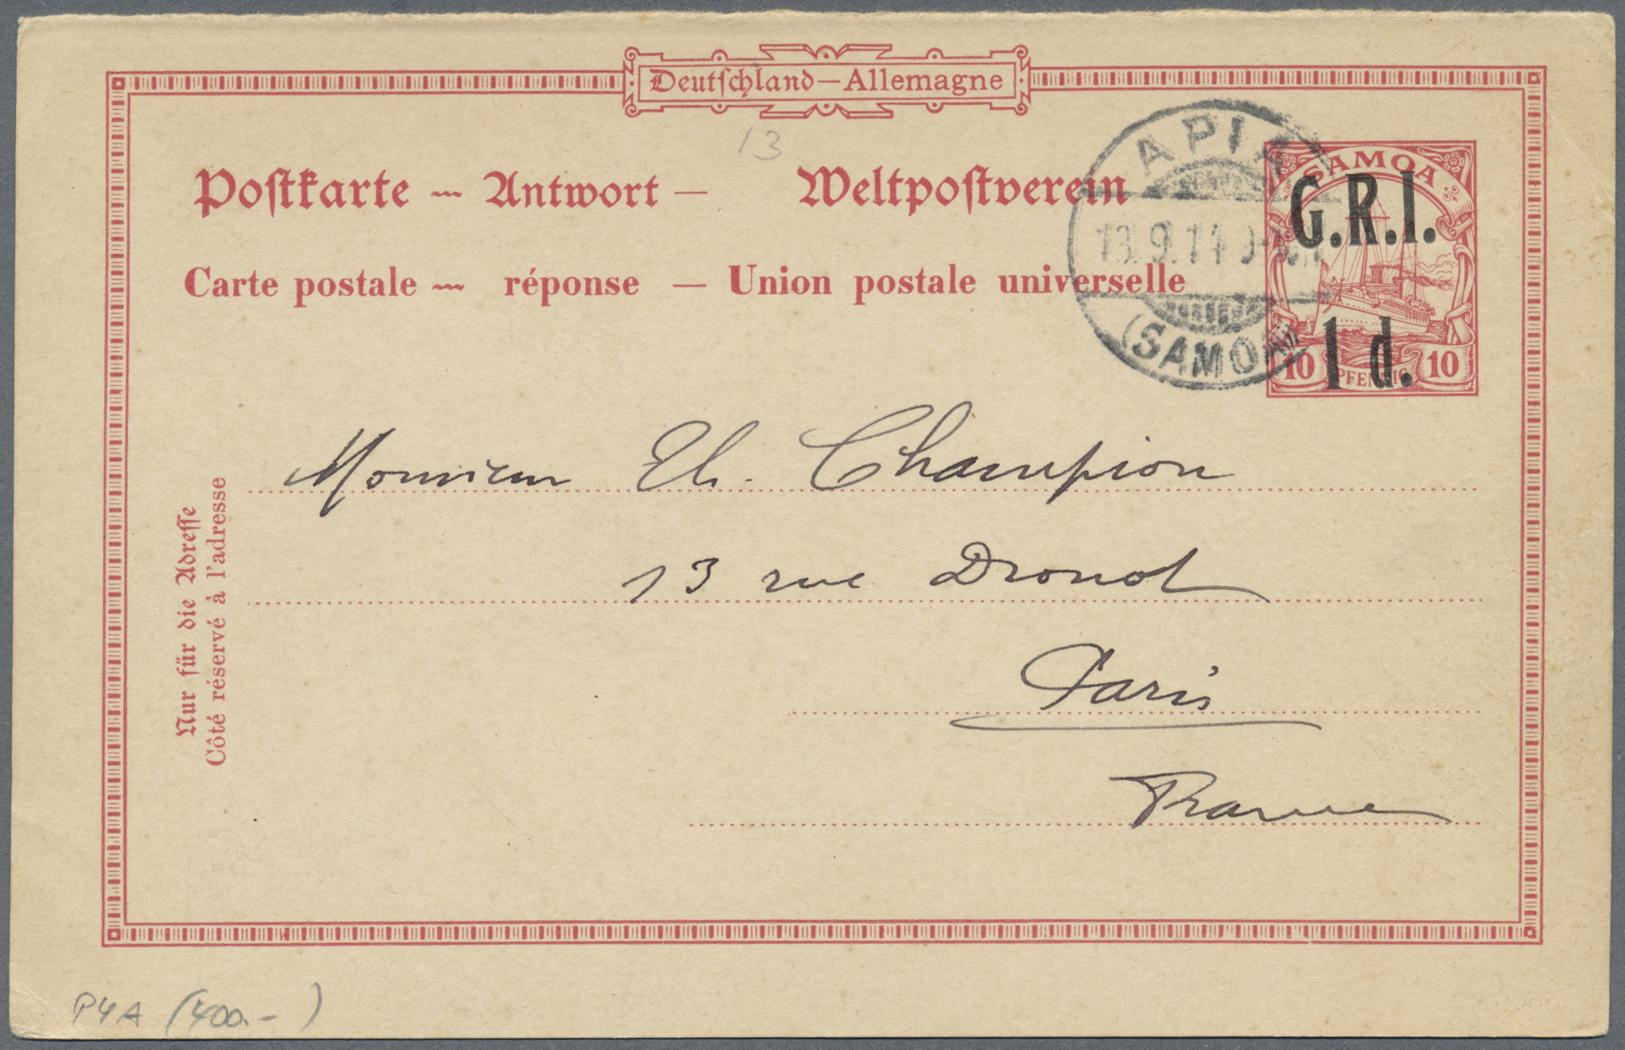 Deutſchland—Allemagne
13
Poſtkarte — Antwort — Weltpoſtverein
Carte postale — réponse — Union postale universelle
APIA
13.9.14
(SAMOA)
SAMOA
G.R.I.
1 d.
10 PFENNIG 10
Monsieur Th. Champion
13 rue Drouot
Paris
France
Nur für die Adreſſe
Côté réservé à l'adresse
P4A (400.-)